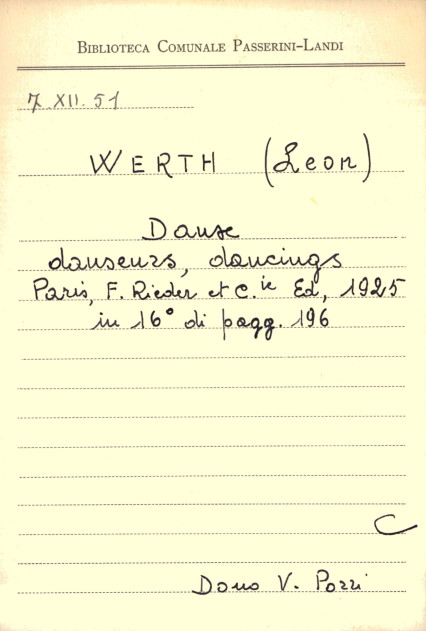 BIBLIOTECA COMUNALE PASSERINI-LANDI
7. XII. 51
WERTH (Leon)
Danse
danseurs, dancings
Paris, F. Rieder et C.ie Ed, 1925
in 16° di pagg. 196
C
Dono V. Pozzi